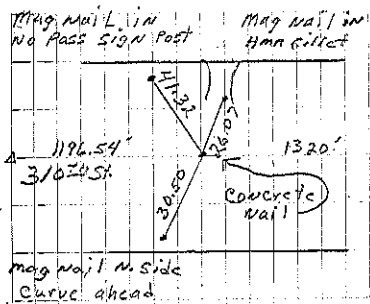 Mag Nail in
No Pass Sign Post
Mag Nail in
HMA Fillet
41.32
26.07
1196.54'
1320'
310th St.
30.50
Concrete
Nail
Mag Nail N. Side
Curve ahead